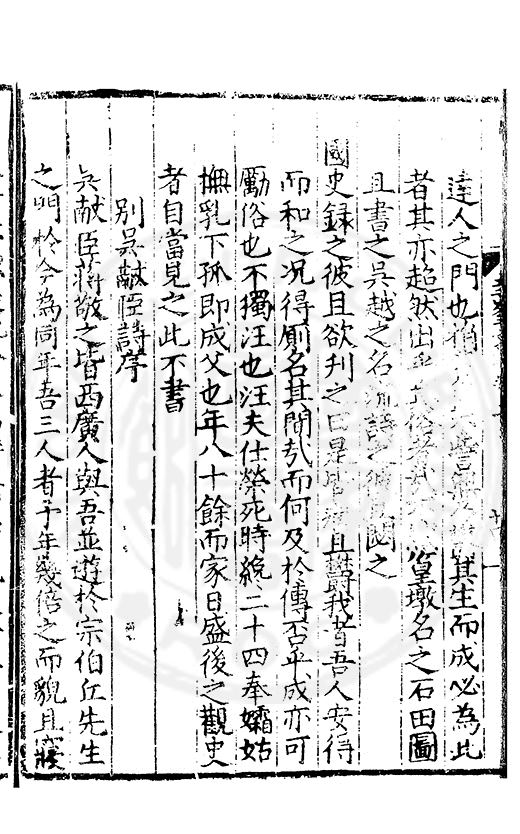 達人之門也其生而成必為此
者其亦超然出乎俗者名之石田圖
且書之吳越之名流詩之閱之
國史録之彼且欲刋之曰是且我者吾人安得
而和之况得厠名其間哉而何及於傳否乎成亦可
勵俗也不獨汪也汪夫仕榮死時纔二十四奉孀姑
撫乳下孤即成父也年八十餘而家日盛後之觀史
者自當見之此不書
別吳献臣詩序
吳献臣蔣敬之皆西廣人與吾並遊於宗伯丘先生
之門於今為同年吾三人者予年幾倍之而貌且